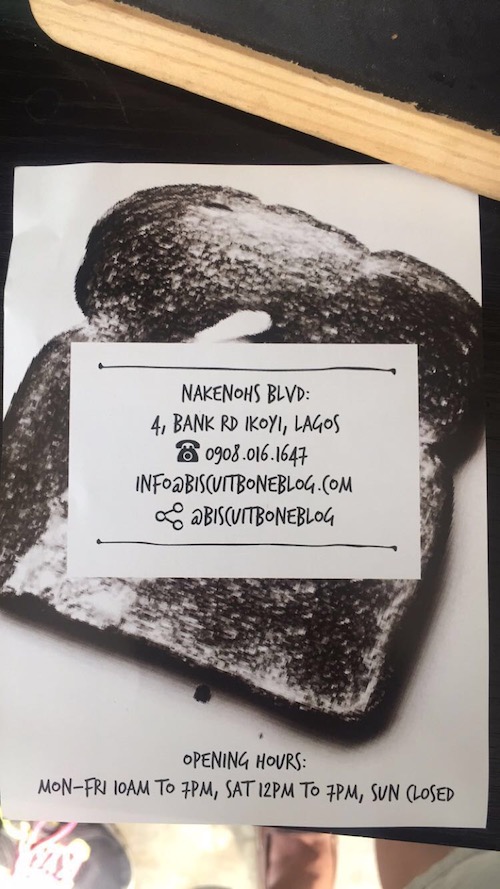 NAKENOHS BLVD:
4, BANK RD IKOYI, LAGOS
0908.016.1647
INFO@BISCUITBONEBLOG.COM
@BISCUITBONEBLOG
OPENING HOURS:
MON-FRI 10AM TO 7PM, SAT 12PM TO 7PM, SUN CLOSED